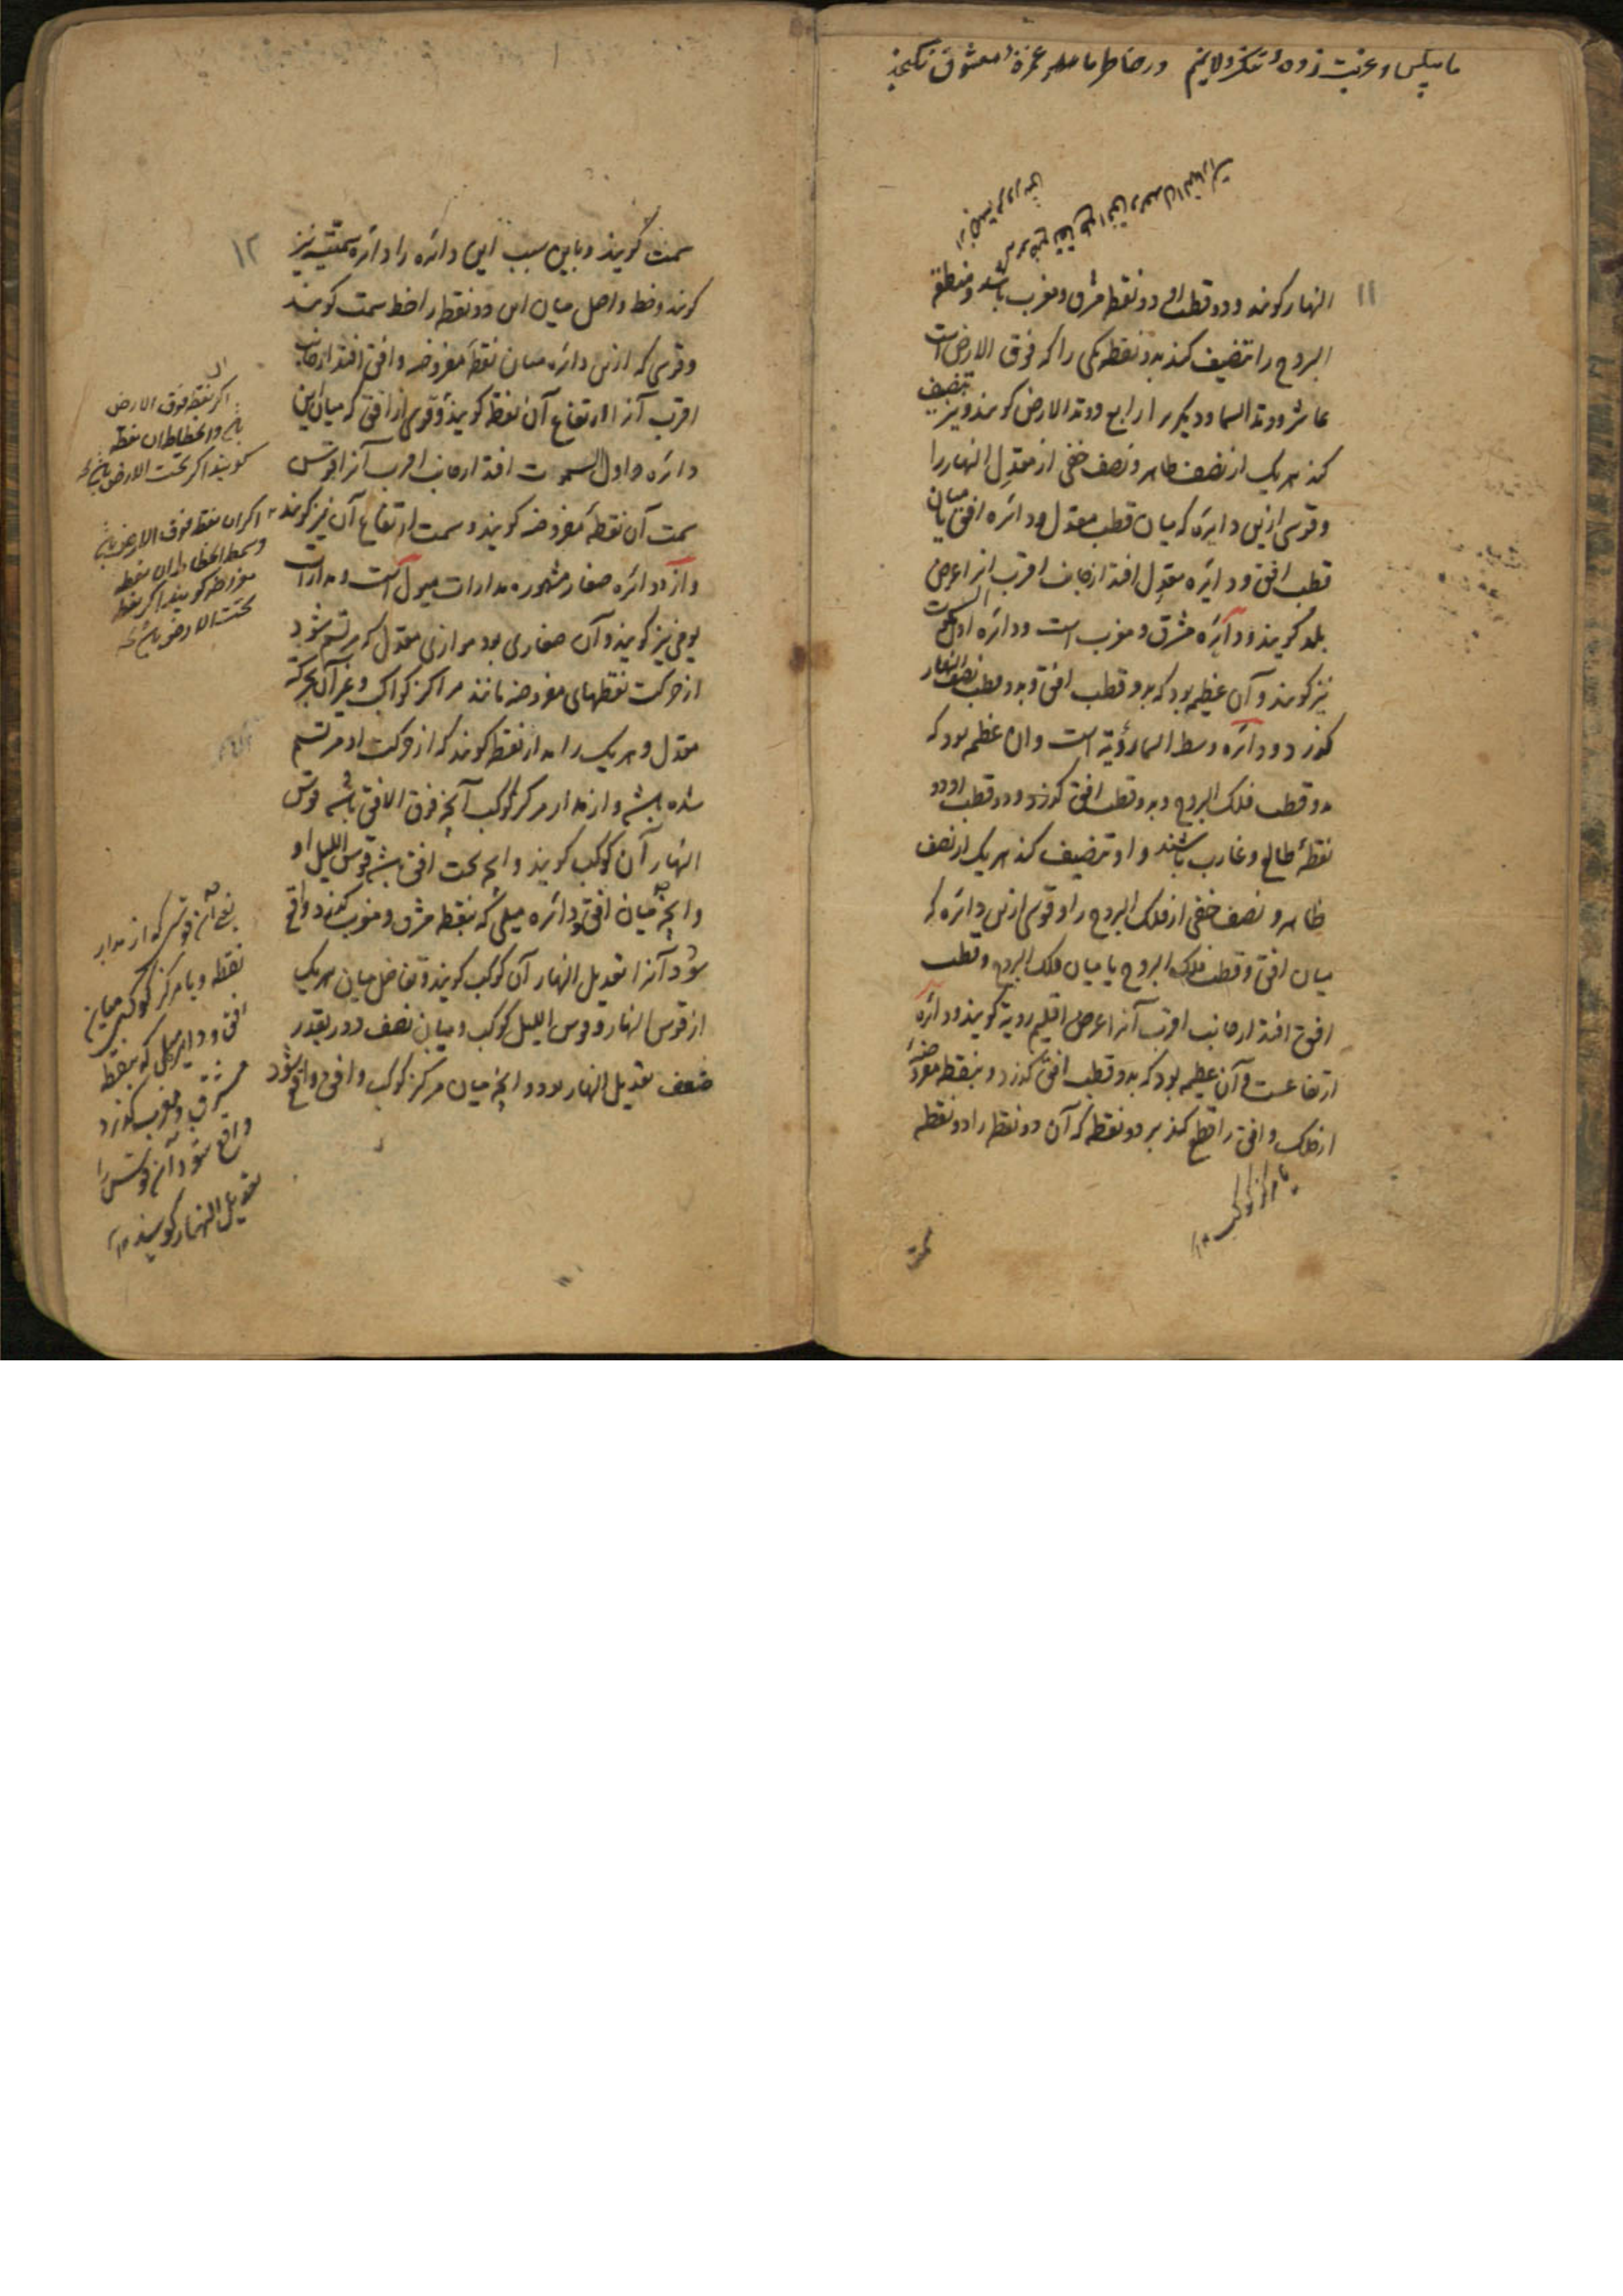 ۱۱
النهار کویند و دو قطب او دو نقطه مشرق و مغرب باشد و منطقة
البروج را تنصیف کند بدو نقطه یکی را که فوق الارض است
عاشر و وتد السما و دیکر را رابع و وتد الارض کویند و نیز تنصیف
کند هر یک از نصف ظاهر و نصف خفی از معدل النهار را
و قوسی ازین دایره که میان قطب معدل و دائره افق یا میان
قطب افق و دایره معدل افتد از جانب اقرب انرا عرض
بلد کویند و دائره مشرق و مغرب است و دائره اول السموت
نیز کویند و آن عظیمه بود که بدو قطب افق و بدو قطب نصف النهار
کذرد و دائره وسط السما رؤیة است و ان عظیمه بود که
بدو قطب فلک البروج و بدو قطب افق کذرد و دو قطب او دو
نقطۀ طالع و غارب باشند و او تنصیف کند هر یک از نصف
ظاهر و نصف خفی از فلک البروج را و قوسی ازین دائره که
میان افق و قطب فلک البروج یا میان فلک البروج و قطب
افق افتد از جانب اقرب آنرا عرض اقلیم رویة کویند و دائره
ارتفاعست و آن عظیمه بود که بدو قطب افق کذرد و بنقطه مفروضه
از فلک و افق را قطع کند بر دو نقطه که آن دو نقطه را دو نقطه
یا مرکز کوکب ۱۲
سمت
۱۲
سمت کویند و باین سبب این دائره را دائره سمتیه نیز
کویند و خط واصل میان این دو نقطه را خط سمت کویند
و قوسی که ازین دائره میان نقطۀ مفروضه و افق افتد از جانب
اقرب آنرا ارتفاع آن نقطه کویند و قوسی از افق که میان این
دائره و اول السموت افتد از جانب اقرب آنرا قوس
سمت آن نقطۀ مفروضه کویند و سمت ارتفاع آن نیز کویند
و از دوائره صغار مشهوره مدارات میول است و مدارات
یومی نیز کویند و آن صغاری بود موازی معدل که مرتسم شود
از حرکت نقطهای مفروضه مانند مراکز کواکب و غیر آن بحرکة
معدل و هر یک را مدار نقطه کویند که از حرکت او مرتسم
شده باشد و از مدار مرکز کوکب آنچه فوق الافق باشد قوس
النهار آن کوکب کویند و انچه تحت افق باشد قوس اللیل او
و انچه میان افق و دائره میلی که بنقطه مشرق و مغرب کذرد واقع
شود آنرا تعدیل النهار آن کوکب کویند و تفاضل میان هر یک
از قوس النهار و قوس اللیل کوکب و میان نصف دور بقدر
ضعف تعدیل النهار بود و انچه میان مرکز کوکب و افق واقع شود
اکر نقطه فوق الارض
باشد و انحطاط ان نقطه
کویند اکر تحت الارض باشد
اکر ان نقطه فوق الارض باشد
و سمت انحطاط ان نقطه
مفروضه کویند اکر نقطه
تحت الارض باشد
یعنی آن قوس که از مدار
نقطه و یا مرکز کوکب میان
افق و دایره میل که بنقطه
مشرق و مغرب کذرد
واقع شود آن قوس را
تعدیل النهار کویند ۱۲